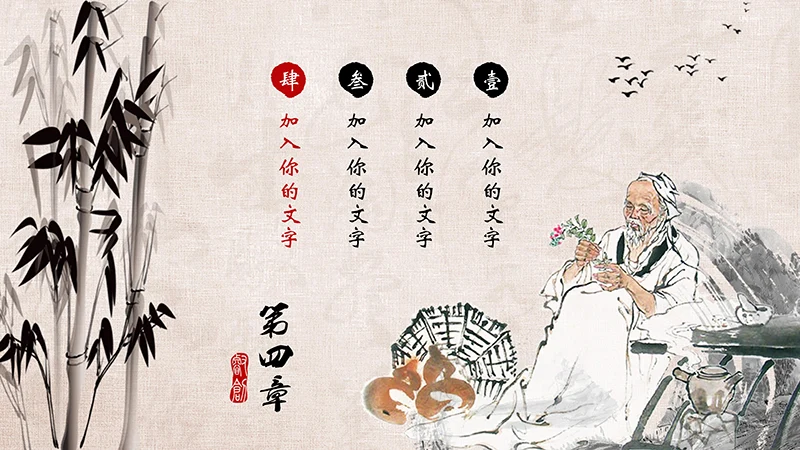 壹
加入你的文字
贰
加入你的文字
叁
加入你的文字
肆
加入你的文字
第四章